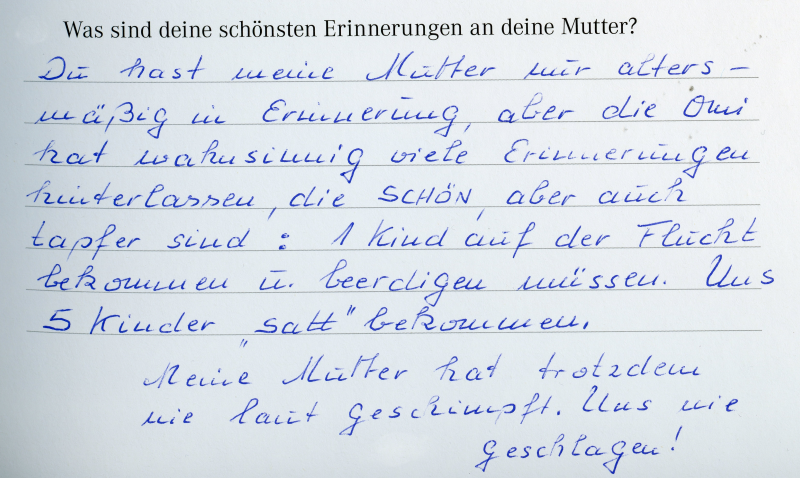 Was sind deine schönsten Erinnerungen an deine Mutter?
Du hast meine Mutter nur alters –
mäßig in Erinnerung, aber die Omi
hat wahnsinnig viele Erinnerungen
hinterlassen, die SCHÖN, aber auch
tapfer sind: 1 Kind auf der Flucht
bekommen u. beerdigen müssen. Uns
5 Kinder „satt“ bekommen.
Meine Mutter hat trotzdem
nie laut geschimpft. Uns nie
geschlagen!